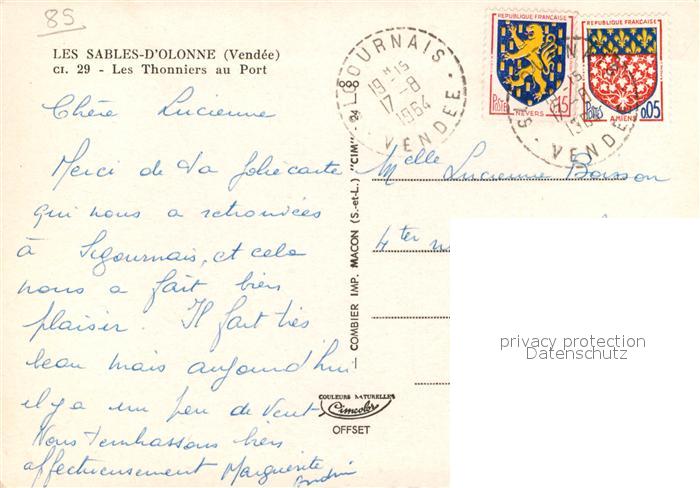 85
LES SABLES-D'OLONNE (Vendée)
CI. 29 - Les Thonniers au Port
Chère Lucienne
Merci de ta jolie carte
qui nous a retrouvées
à Sigournais, et cela
nous a fait bien
plaisir. Il fait très
beau mais aujourd'hui
il y a un peu de vent
Nous t'embrassons bien
affectueusement Marguerite
COMBIER IMP. MACON (S.-et-L.) "CIM"
COULEURS NATURELLES
Cimcolor
OFFSET
SIGOURNAIS
19H15
17-8
1964
VENDÉE
REPUBLIQUE FRANÇAISE
POSTES
0,15
NEVERS
REPUBLIQUE FRANÇAISE
POSTES
0,05
AMIENS
VENDÉE
Melle Lucienne Boisson
4ter
privacy protection
Datenschutz